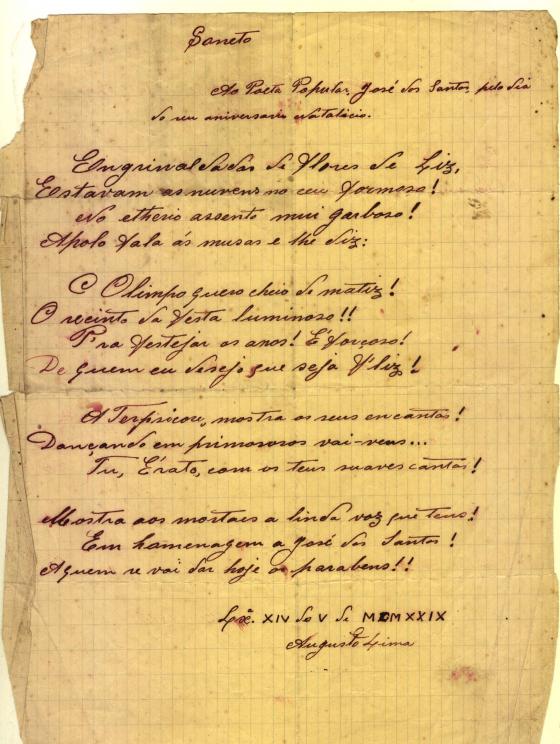 Soneto
Ao Poeta Popular, José dos Santos, pelo dia
do seu aniversario natalicio.
Engrinaldadas de Flores de Liz,
Estavam as nuvens no ceu Formoso!
No etherio assento mui garboso!
Apolo Fala ás musas e lhe diz:
O Olimpo quero cheio de matiz!
O recinto da Festa luminoso!!
P'ra Festejar os anos! É Forçoso!
De quem eu desejo que seja F'liz!
A Terpsicore, mostra os seus encantos!
Dançando em primorosos vai-vens...
Tu, Érato, com os teus suaves cantos!
Mostra aos mortaes a linda voz que tens!
Em homenagem a José dos Santos!
A quem se vai dar hoje os parabens!!
Lxª. XIV do V de MCMXXIX
Augusto Lima